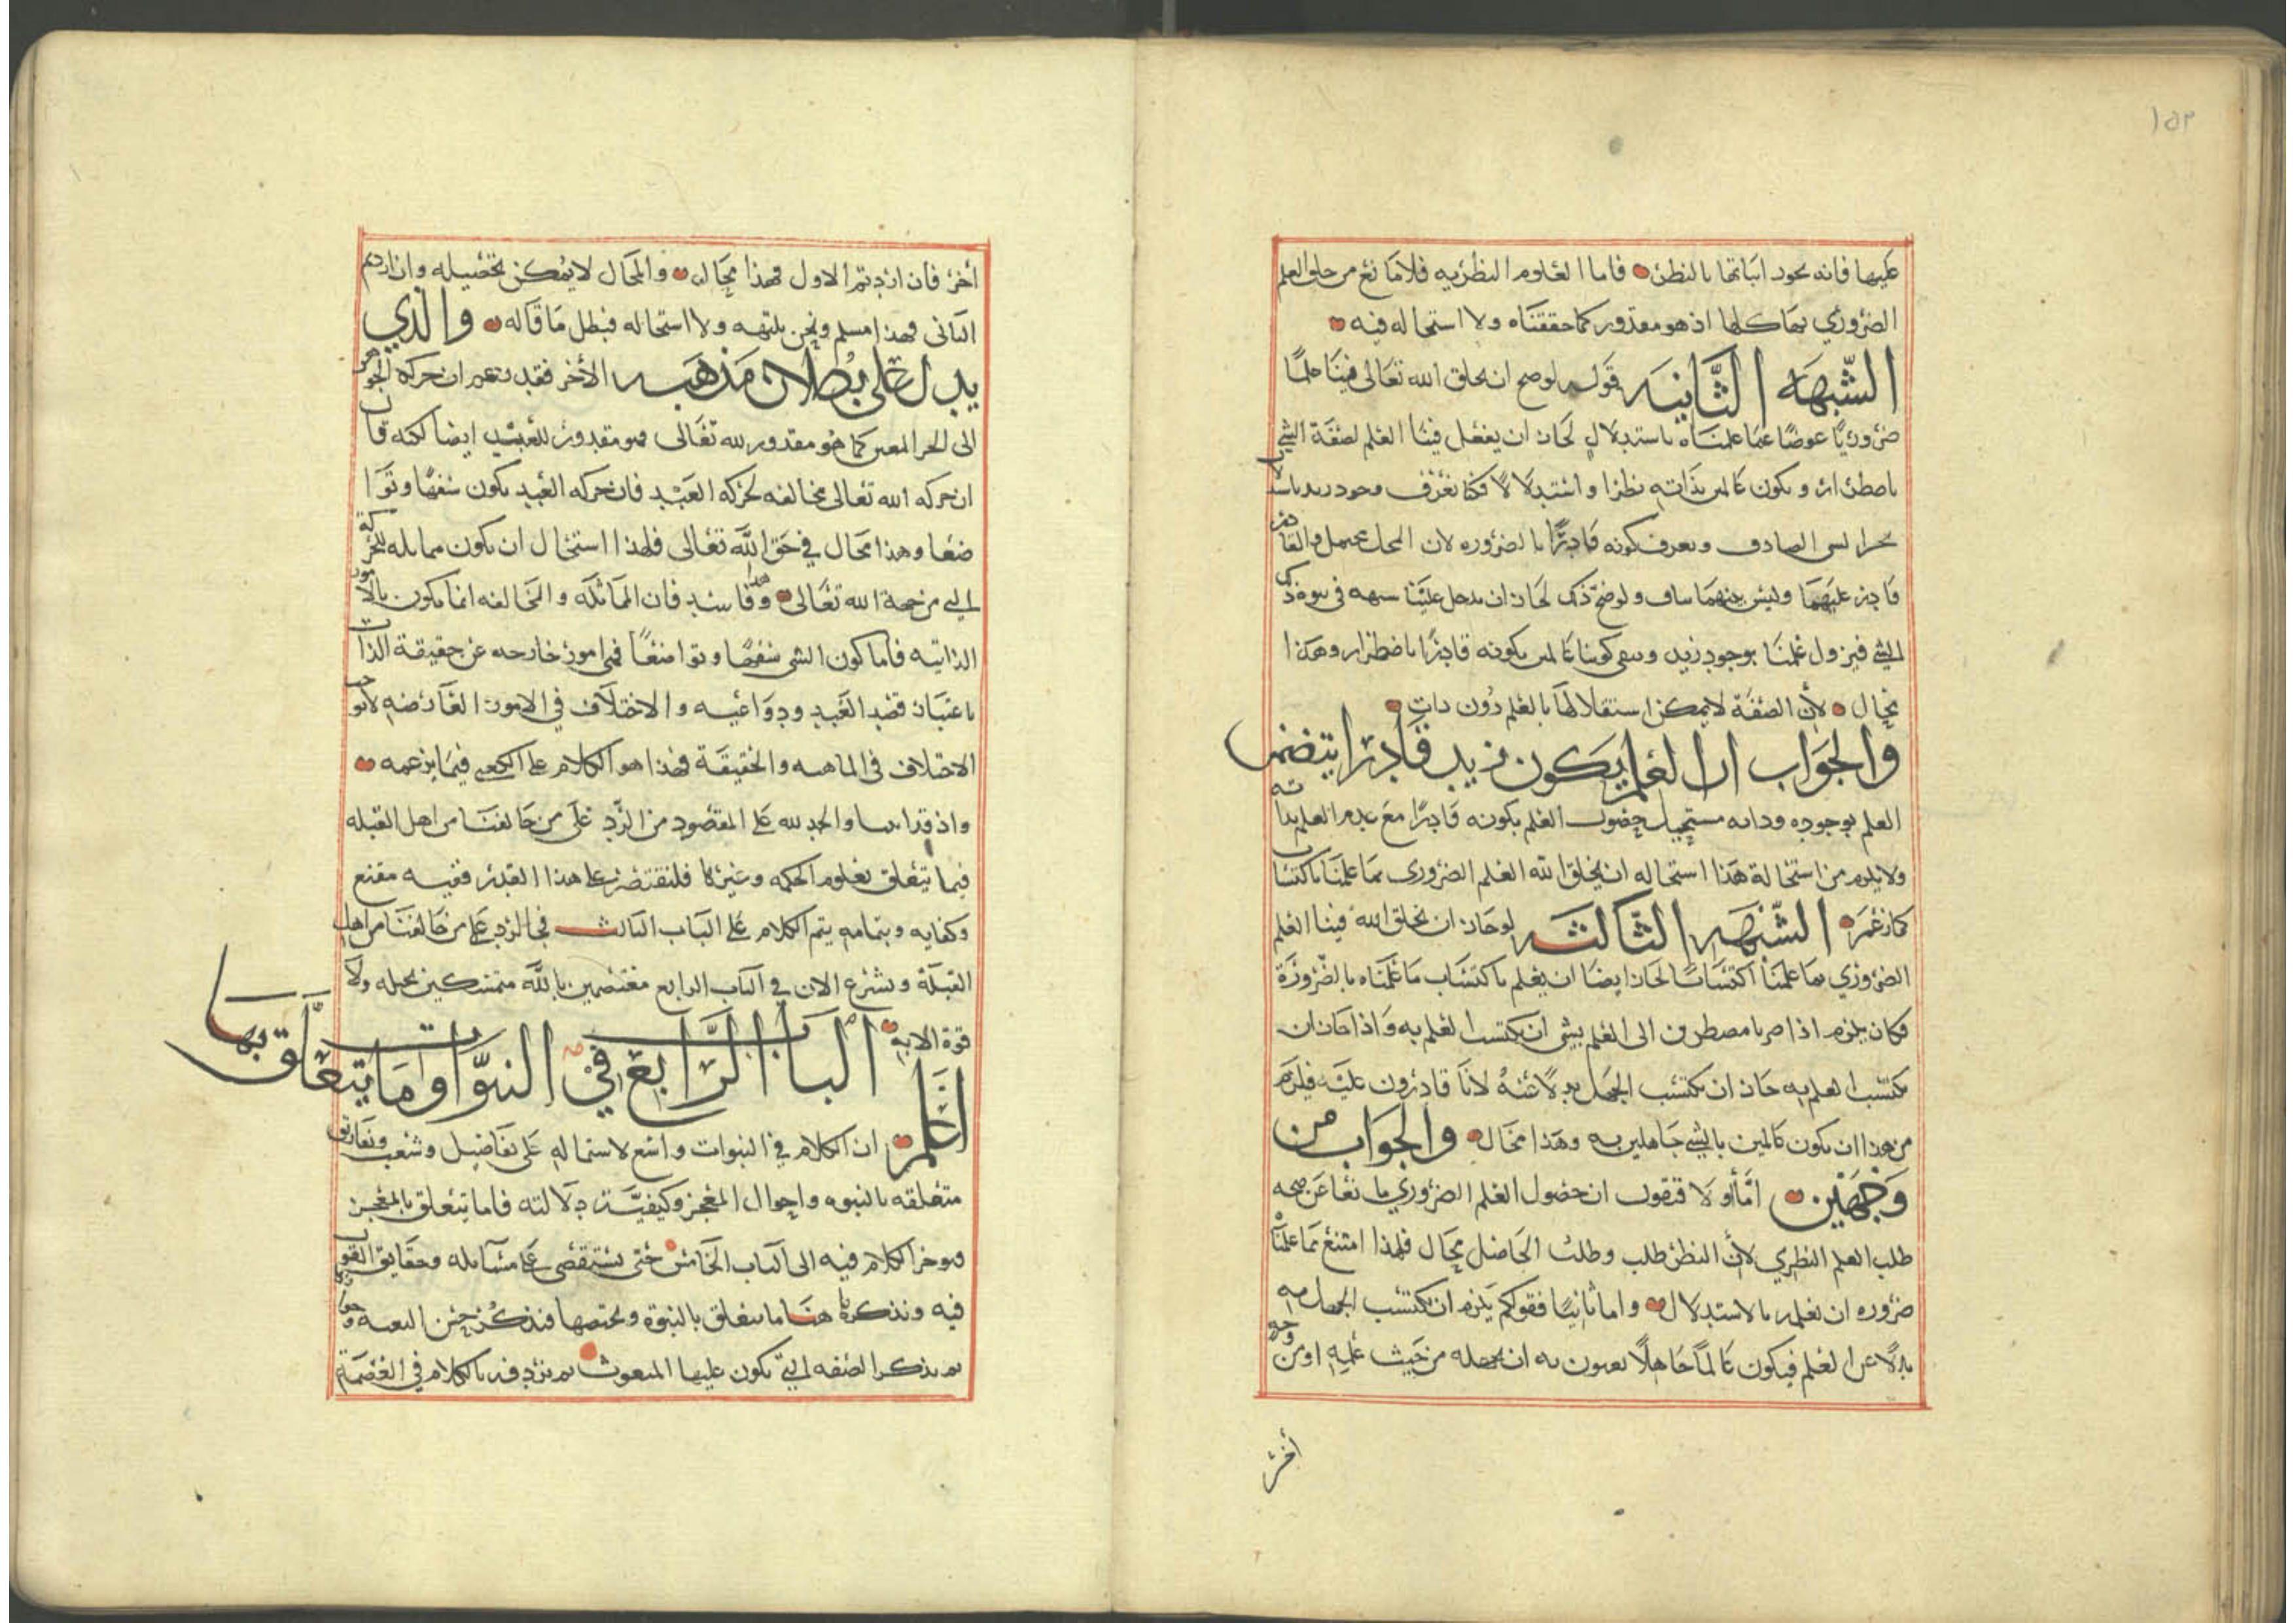 ١٥٣
عليها فانه يجوز اثباتها بالنظر فاما العلوم النظريه فلا مانع من خلق العلم
الضروري بها كلها اذ هو مقدور كما حققناه ولا استحاله فيه
الشبهه الثانيه قوله لو صح ان يخلق الله تعالى فينا علمًا
ضروريًا عوضًا عما علمناه باستدلال لجاز ان يفعل فينا العلم لصفة الشي
باضطرار ونكون عالمين بذاته نظرا واستدلالًا فكنا نعرف وجود زيد
الصادق ونعرف كونه قادرًا بالضروره لان المحل محتمل والقادر
قادر عليهما وليس بينهما تناف ولو صح ذلك لجاز ان يدخل علينا شبهه في ثبوت ذلك
الشي فيزول علمنا بوجود زيد ويبقى كوننا عالمين بكونه قادرًا باضطرار وهذا
محال لأن الصفة لا يمكن استقلالها بالعلم دون ذات
والجواب ان العلم بكون زيد قادرا يتضمن
العلم بوجوده وذاته مستحيل حصول العلم بكونه قادرًا مع عدم العلم بذاته
ولا يلزم من استحالة هذا استحاله ان يخلق الله العلم الضروري بما علمنا باكتساب
كما زعمر الشبهه الثالثه لو جاز ان يخلق الله فينا العلم
الضروري بما علمنا اكتسابًا لجاز ايضا ان يعلم باكتساب ما علمناه بالضرورة
فكان يلزم اذا صرنا مضطرين الى العلم بشي ان نكتسب العلم به واذا جاز ان
نكتسب العلم به جاز ان نكتسب الجهل بدلًا عنه لانا قادرون عليه فيلزم
من هذا ان نكون عالمين بالشي جاهلين به وهذا محال والجواب من
وجهين امّا أولا فنقول ان حصول العلم الضروري مانعا عن صحه
طلب العلم النظري لأن النظر طلب وطلب الحاصل محال فلهذا امتنع مما علمناه
ضروره ان نعلمه بالاستدلال واما ثانيًا فقولكم يلزم ان نكتسب الجهل به
بدلًا عن العلم فيكون عالمًا جاهلًا تعنون به ان يجهله من حيث علمه او من وجه
أخر
أخر فان اردتم الاول فهذا محال والمحال لا يمكن تحصيله وان اردتم
الثانى فهذا مسلم ونحن نلتزمه ولا استحاله فبطل ما قاله والذي
يدل على بطلان مذهبه الأخر فقد زعم ان حركه الجوهر
الى الحيز المعين كما هو مقدور لله تعالى فهو مقدور للعبد ايضا لكنه قال
ان حركه الله تعالى مخالفه لحركه العبد فان حركه العبد تكون سفهًا وتواضعا
وهذا محال في حق الله تعالى فلهذا استحال ان يكون مماثله للحركة
التي من جهة الله تعالى وهذا فاسد فان المماثلة والمخالفه انما يكون بالامور
الذاتيه فاما كون الشي سفهًا وتواضعًا فهي امور خارجه عن حقيقة الذات
باعتبار قصد العبد ودواعيه والاختلاف في الامور العارضه لا يوجب
الاختلاف في الماهيه والحقيقة فهذا هو الكلام على الكعبي فيما يزعمه
واذ قد اتينا والحمد لله على المقصود من الرد على من خالفنا من اهل القبله
فيما يتعلق بعلوم الحكمه وغيرها فلنقتصر على هذا القدر ففيه مقنع
وكفايه وبتمامه يتم الكلام على الباب الثالث في الرد على من خالفنا من اهل
القبلة ونشرع الان في الباب الرابع معتصمين بالله متمسكين بحبله ولا
قوة الا به الباب الرابع في النبوات وما يتعلق بها
اعلمر ان الكلام في النبوات واسع لاشتماله على تفاصيل وشعب
متعلقه بالنبوه واحوال المعجز وكيفيّة دلالته فاما يتعلق بالمعجز
فنوخر الكلام فيه الى الباب الخامس حتى نستقصى على مسائله وحقايق القول
فيه ونذكر هاهنا ما يتعلق بالنبوة ويختصها فنذكر حسن البعثه
ثم نذكر الصفه التي يكون عليها المبعوث ثم نردفه بالكلام في العصمة